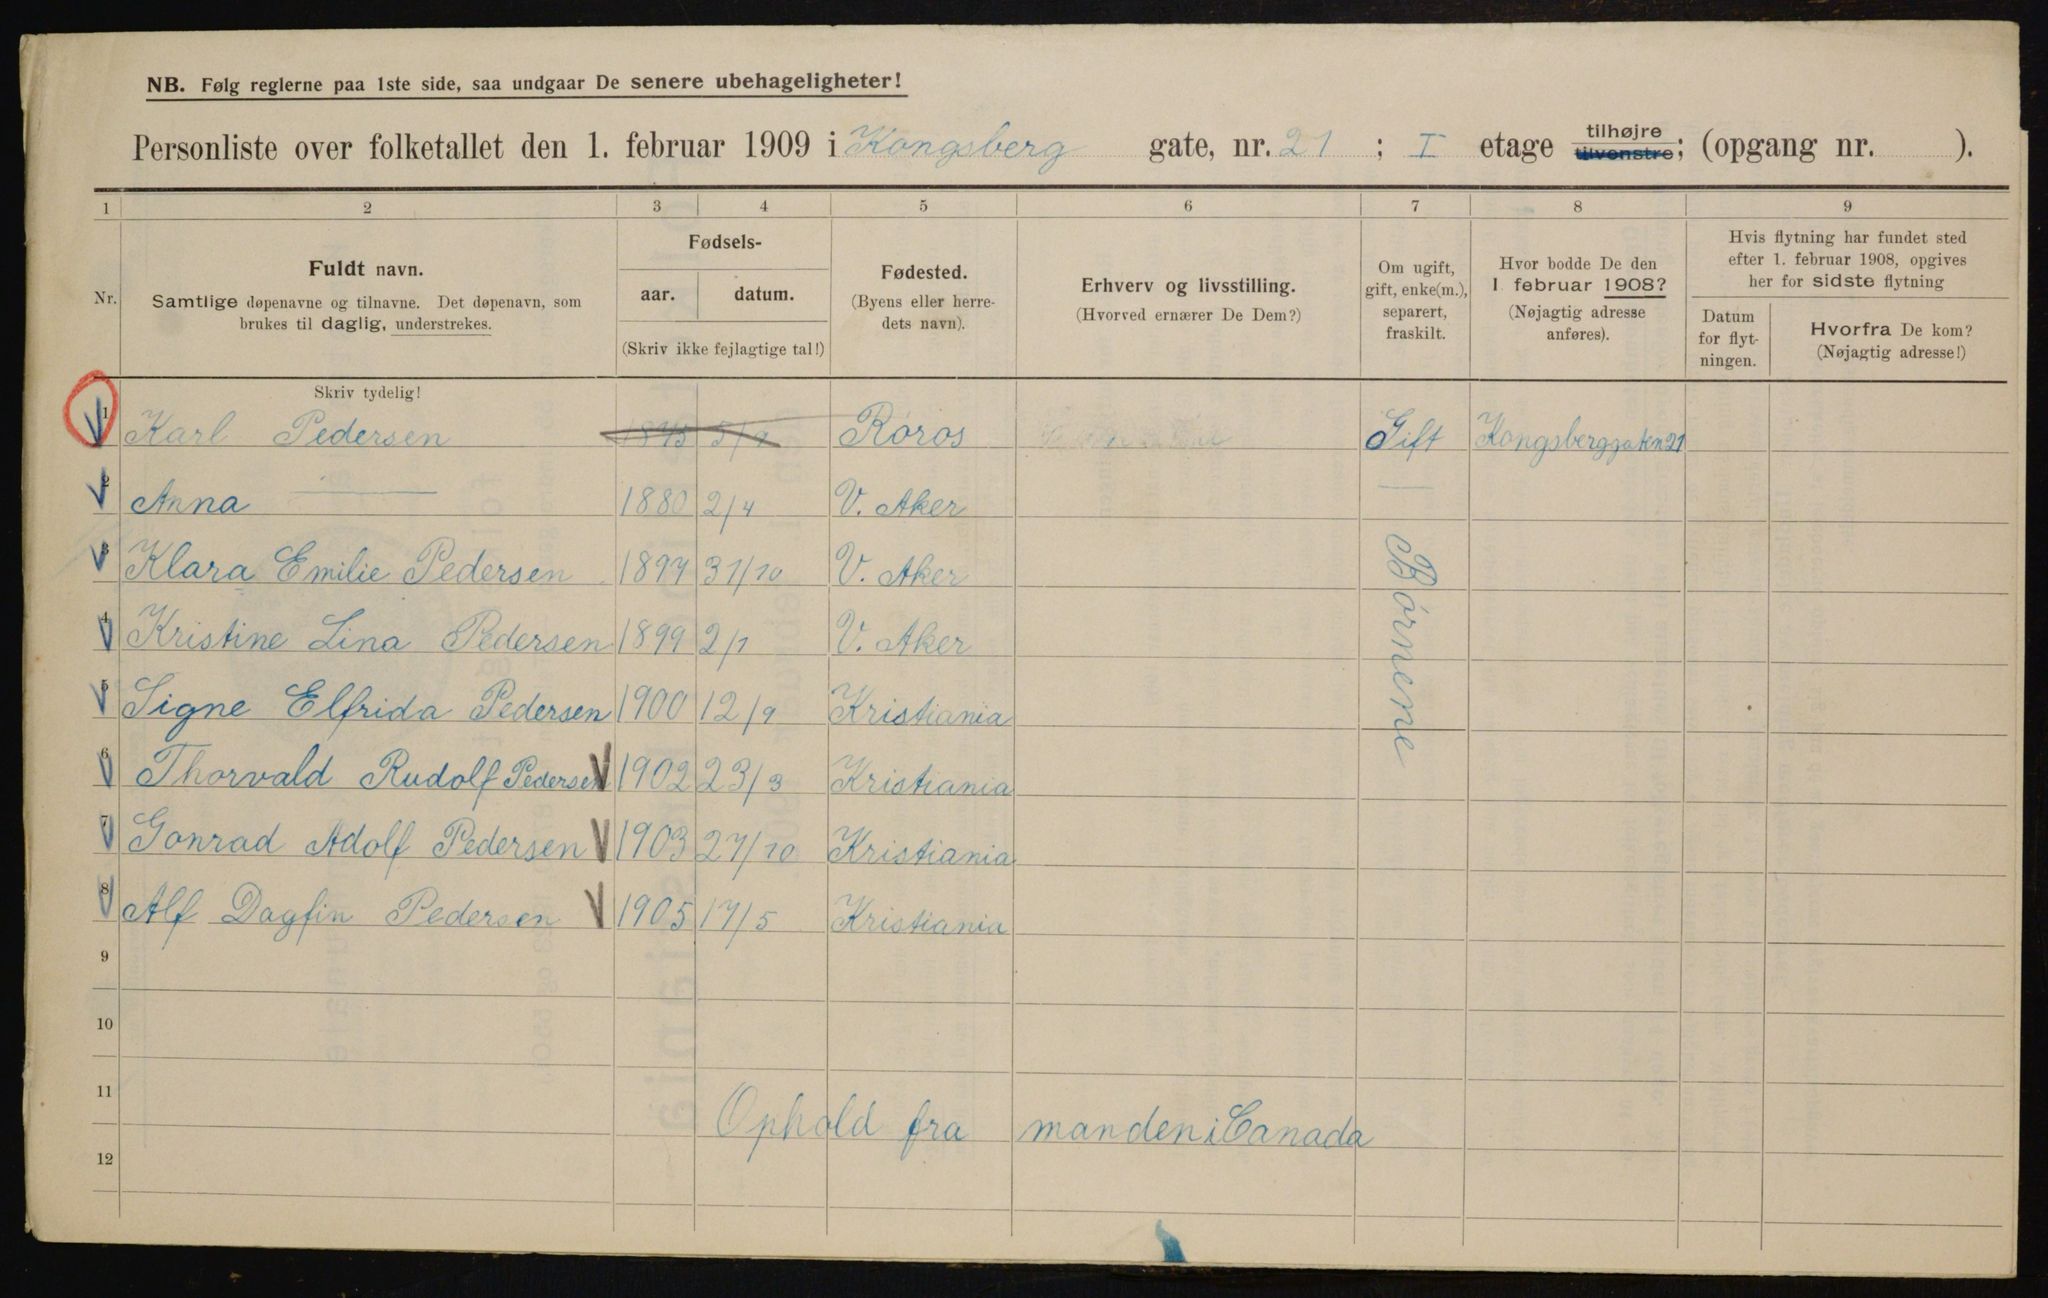 NB. Følg reglerne paa 1ste side, saa undgaar De senere ubehageligheter!
Personliste over folketallet den 1. februar 1909 i Kongsberg gate, nr. 21 ; I etage tilhøjre tilvenstre; (opgang nr. ).
1 2 3 4 5 6 7 8 9
Nr.
Fuldt navn.
Samtlige døpenavne og tilnavne. Det døpenavn, som
brukes til daglig, understrekes.
Fødsels-
aar. datum.
(Skriv ikke fejlagtige tal!)
Fødested.
(Byens eller herre-
dets navn).
Erhverv og livsstilling.
(Hvorved ernærer De Dem?)
Om ugift,
gift, enke(m.),
separert,
fraskilt.
Hvor bodde De den
1. februar 1908?
(Nøjagtig adresse
anføres).
Hvis flytning har fundet sted
efter 1. februar 1908, opgives
her for sidste flytning
Datum
for flyt-
ningen.
Hvorfra De kom?
(Nøjagtig adresse!)
Skriv tydelig!
1 Karl Pedersen Röros Gift Kongsberggaten 21
2 Anna 1880 2/4 V. Aker
3 Klara Emilie Pedersen 1897 31/10 V. Aker
4 Kristine Lina Pedersen 1899 2/1 V. Aker
5 Signe Elfrida Pedersen 1900 12/9 Kristiania
6 Thorvald Rudolf Pedersen 1902 23/3 Kristiania
7 Gonrad Adolf Pedersen 1903 27/10 Kristiania
8 Alf Dagfin Pedersen 1905 17/5 Kristiania
Börnene
9
10
11
Ophold fra manden i Canada
12